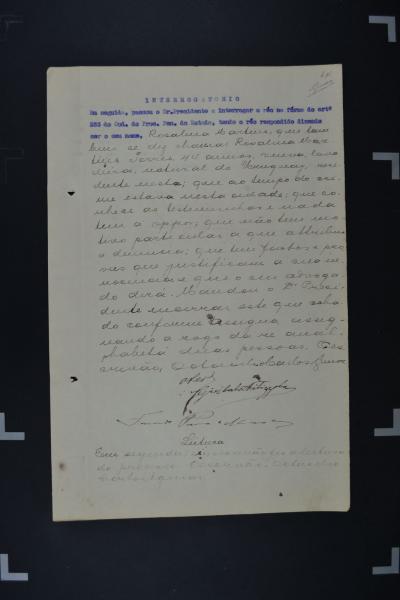 INTERROGATORIO
Em seguida, passou o Dr.Presidente a interrogar a ré na fórma do artº
233 do Cod. do Proc. Pen. do Estado, tendo o réo respondido dizendo
ser o seu nome, Rosalina Martins, que tam
bem se diz chamar Rosalina Mar
tins Torres, 40 annos, viuva, lava
deira, natural do Uruguay, resi
dente nesta; que ao tempo do cri
me estava nesta cidade; que co
nhece as testemunhas e nada
tem a oppor; que não tem mo
tivo particular a que attribua
a denuncia; que tem factos e pro
vas que justificam a sua in
nocencia e que o seu advoga
do dirá. Mandou o Dr. Presi
dente encerrar este que acha
do conforme assigna, assig
nando a rogo da ré anal
phabeta duas pessoas. Eu
escrivão,
Leitura
Em seguida a leitura
do processo